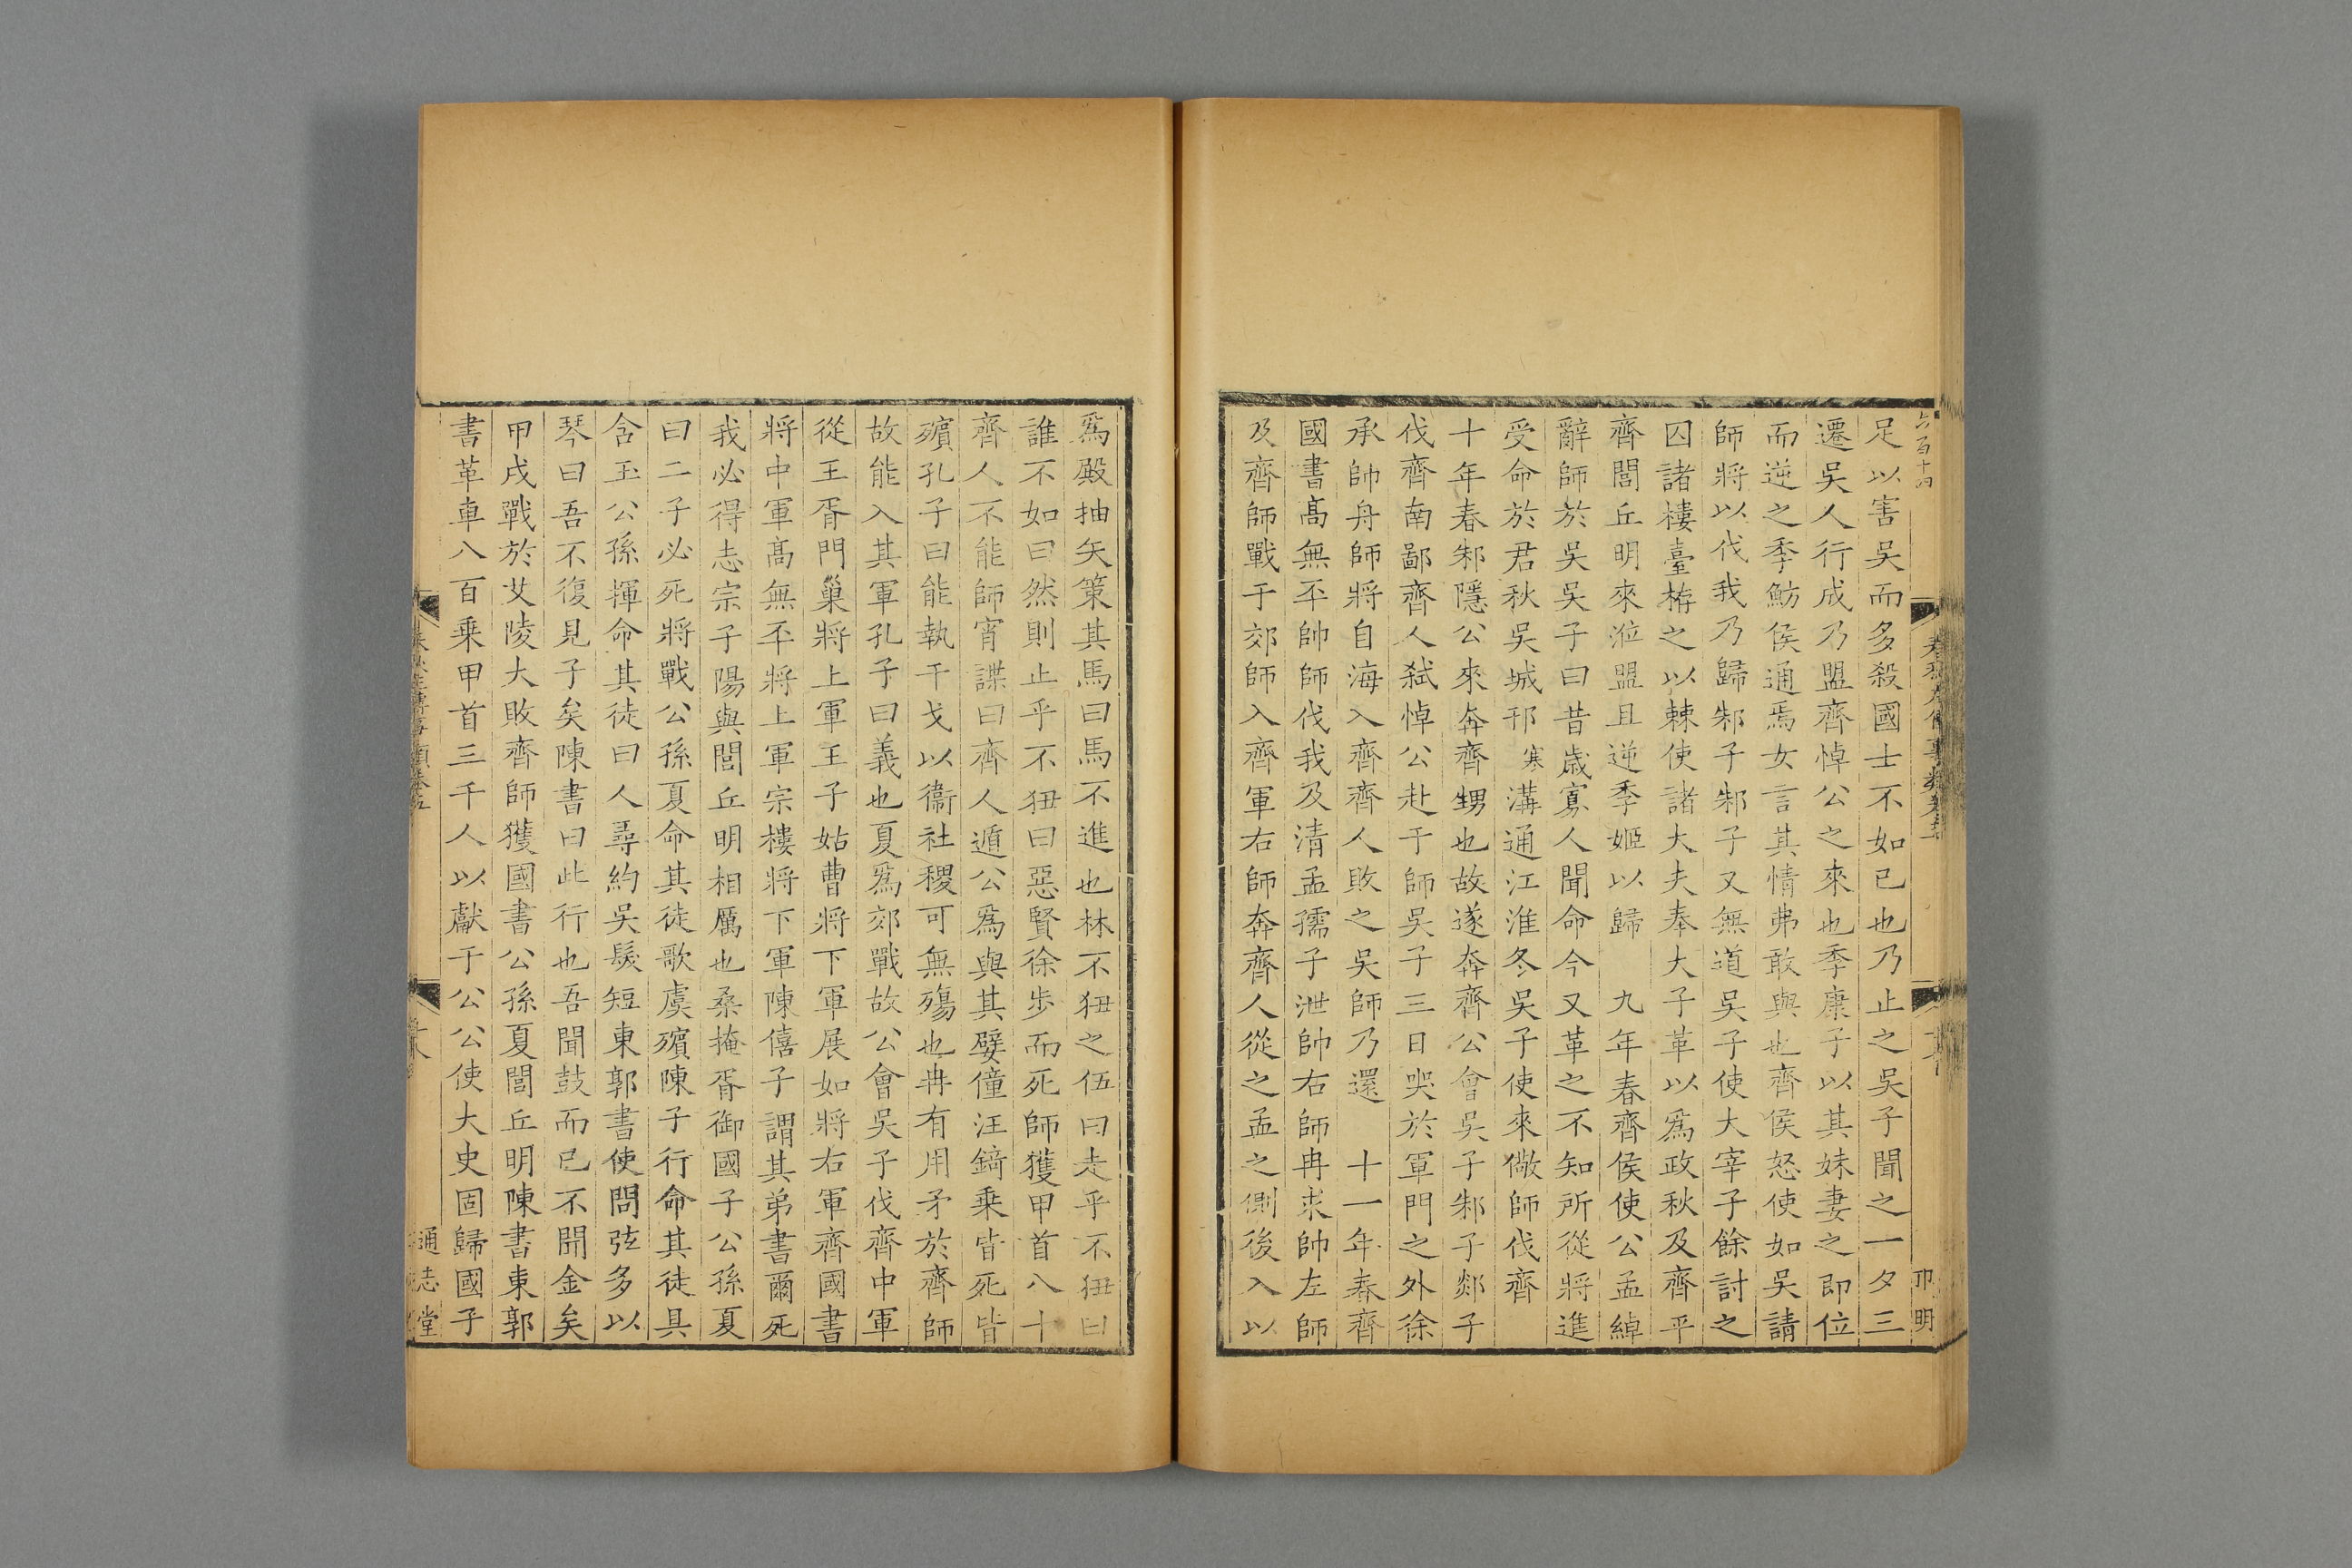 六百十四
足以害吳而多殺國士不如已也乃止之吳子聞之一夕三
遷吳人行成乃盟齊悼公之來也季康子以其妹妻之即位
而逆之季魴侯通焉女言其情弗敢與也齊侯怒使如吳請
師將以伐我乃歸邾子邾子又無道吳子使大宰子餘討之
囚諸樓臺栫之以棘使諸大夫奉大子革以爲政秋及齊平
齊閭丘明來涖盟且逆季姬以歸　九年春齊侯使公孟綽
辭師於吳吳子曰昔歲寡人聞命今又革之不知所從將進
受命於君秋吳城邗寒溝通江淮冬吳子使來儆師伐齊
十年春邾隱公來奔齊甥也故遂奔齊公會吳子邾子郯子
伐齊南鄙齊人弑悼公赴于師吳子三日哭於軍門之外徐
承帥舟師將自海入齊齊人敗之吳師乃還　十一年春齊
國書高無㔻帥師伐我及清孟孺子泄帥右師冉求帥左師
及齊師戰于郊師入齊軍右師奔齊人從之孟之側後入以
爲殿抽矢策其馬曰馬不進也林不狃之伍曰走乎不狃曰
誰不如曰然則止乎不狃曰惡賢徐步而死師獲甲首八十
齊人不能師宵諜曰齊人遁公爲與其嬖僮汪錡乘皆死皆
殯孔子曰能執干戈以衞社稷可無殤也冉有用矛於齊師
故能入其軍孔子曰義也夏爲郊戰故公會吳子伐齊中軍
從王胥門巢將上軍王子姑曹將下軍展如將右軍齊國書
將中軍高無㔻將上軍宗樓將下軍陳僖子謂其弟書爾死
我必得志宗子陽與閭丘明相厲也桑掩胥御國子公孫夏
曰二子必死將戰公孫夏命其徒歌虞殯陳子行命其徒具
含玉公孫揮命其徒曰人尋約吳髮短東郭書使問弦多以
琴曰吾不復見子矣陳書曰此行也吾聞鼓而已不聞金矣
甲戌戰於艾陵大敗齊師獲國書公孫夏閭丘明陳書東郭
書革車八百乘甲首三千人以獻于公公使大史固歸國子
通志堂